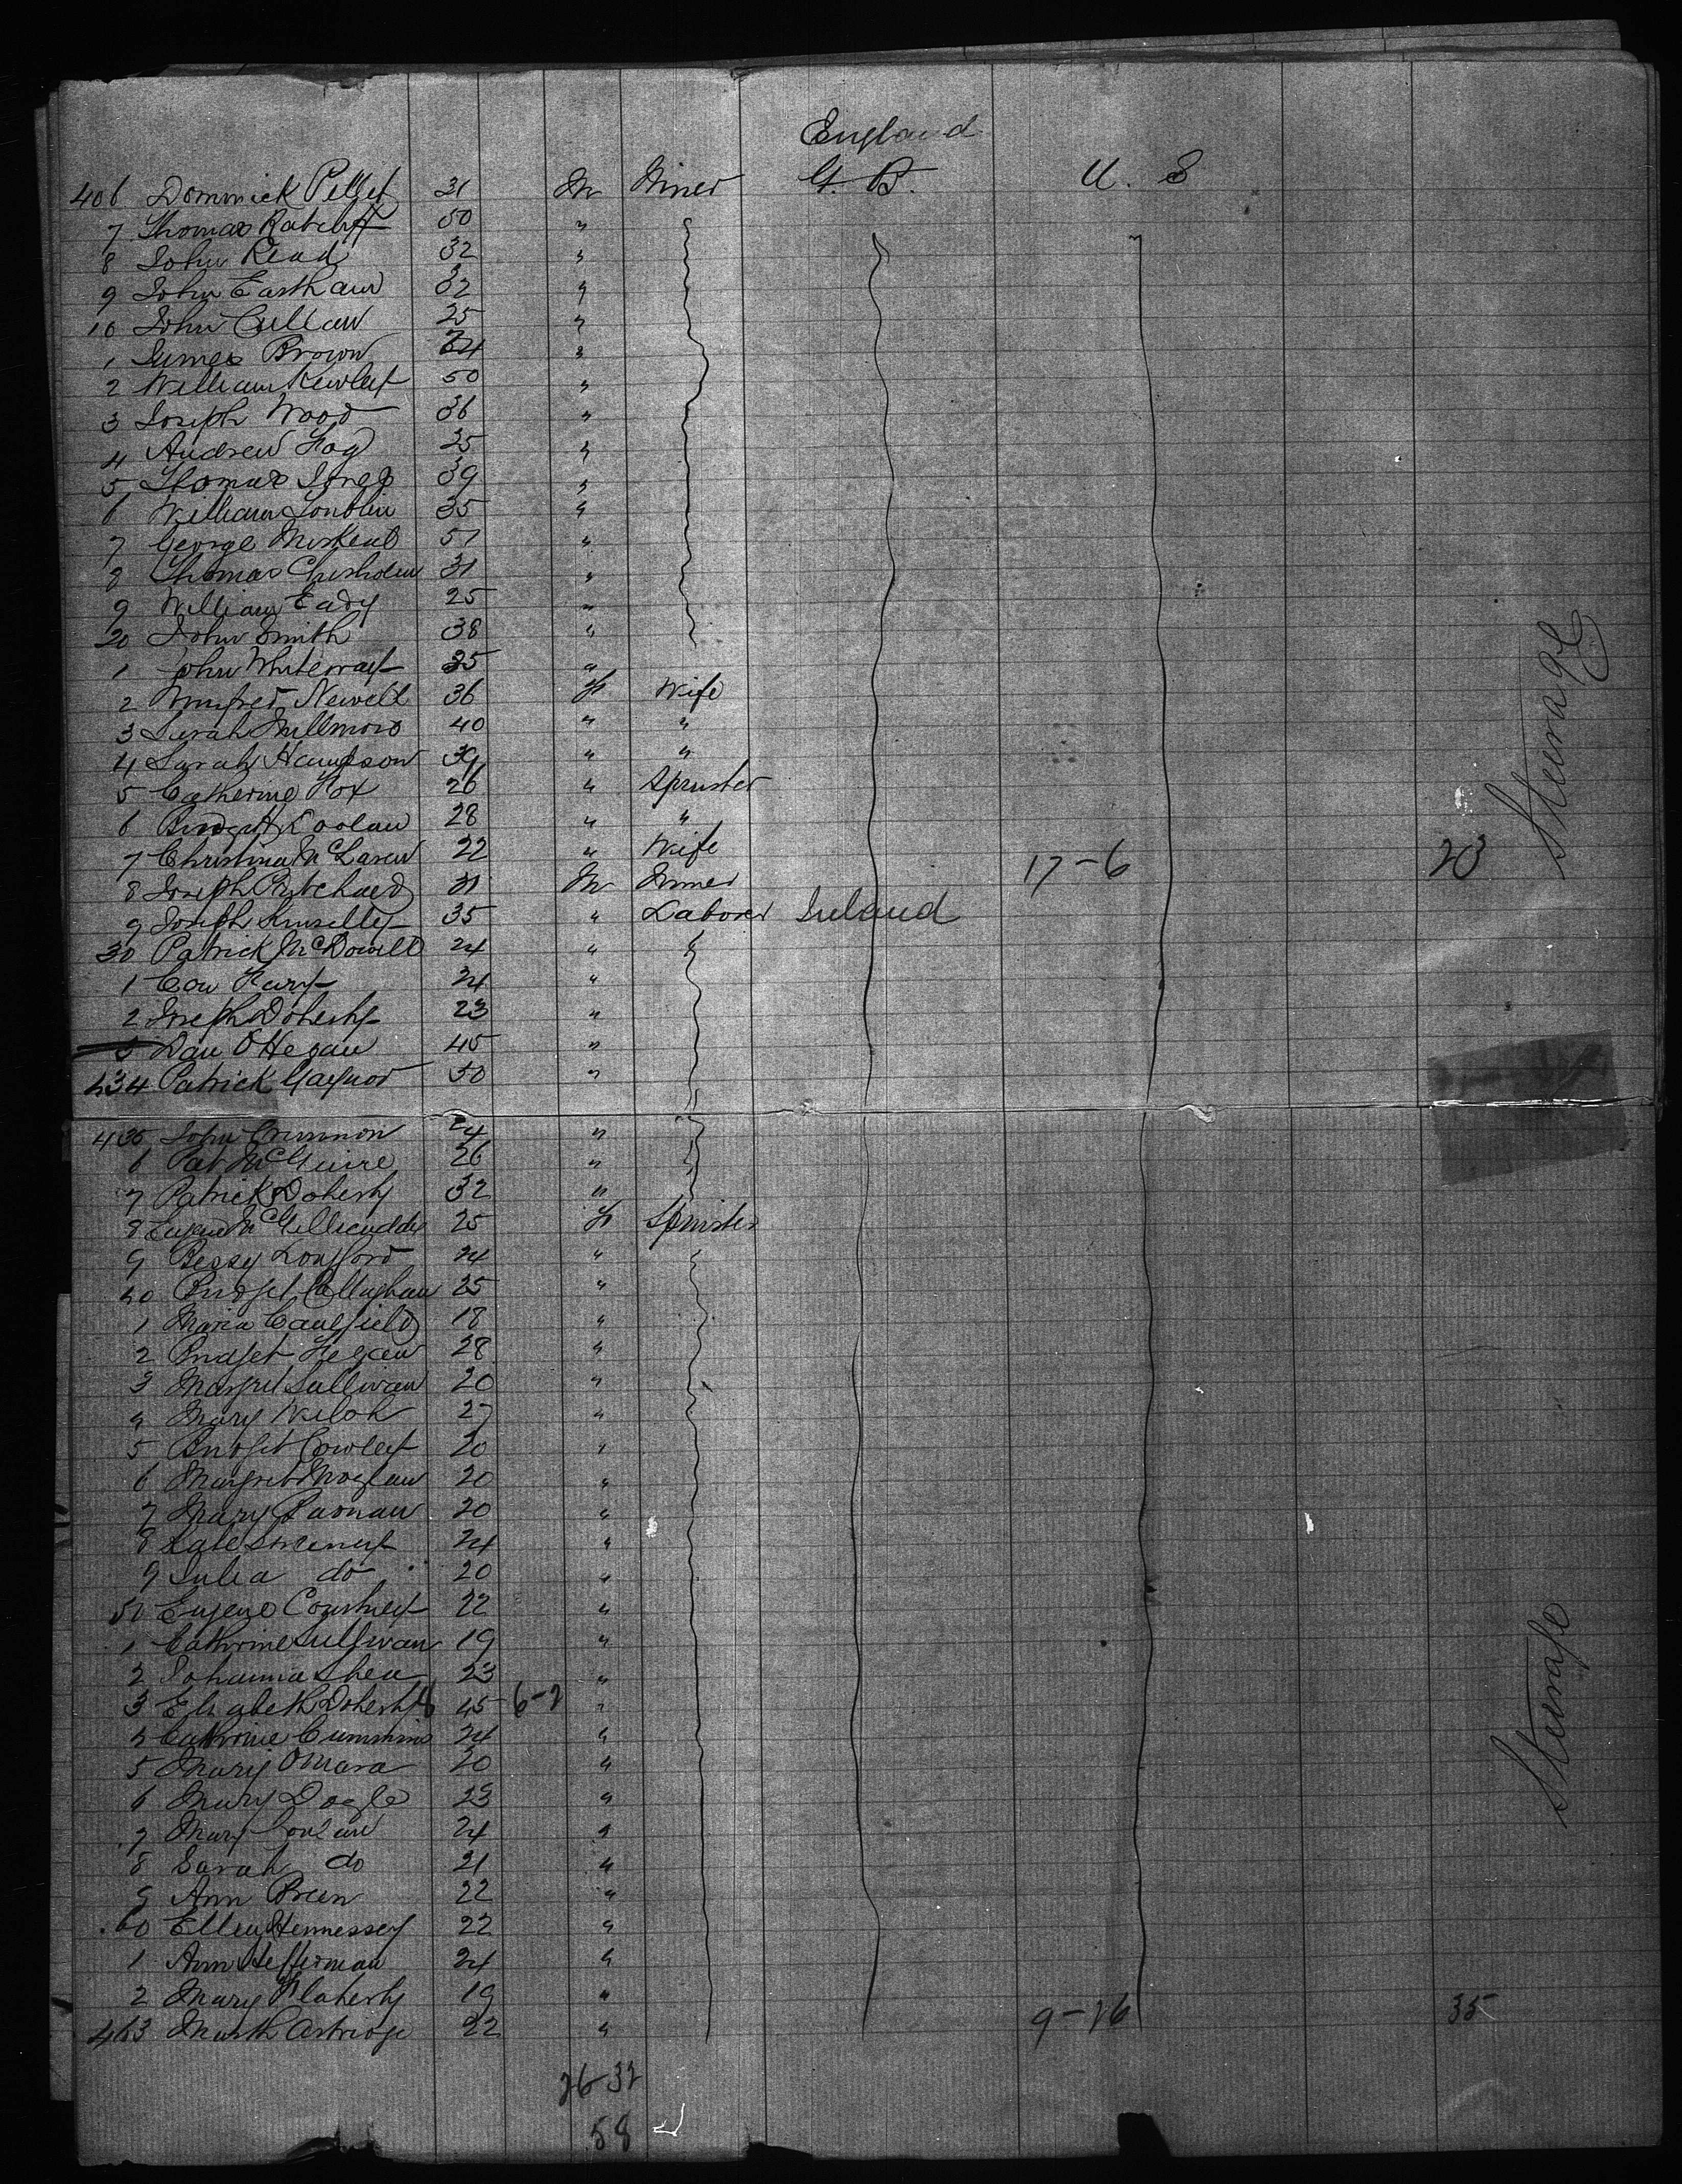 England
406 Dominick Pellet 31 M Miner G. B. U. S
7 Thomas Ratcliff 50 "
8 John Read 32 "
9 John Eastham 32 "
10 John Cullan 25 "
1 James Brown 24 "
2 William Kewley 50 "
3 Joseph Wood 36 "
4 Andrew Hag 25 "
5 Thomas Jones 39 "
6 William 35 "
7 George 57 "
8 Thomas Chisholm 31 "
9 William Eady 25 "
20 John Smith 38 "
1 John Whiteway 35 "
2 Newell 36 F Wife
3 Sarah 40 " "
4 Sarah Hampson 39 " "
5 Catherine Fox 26 " Spinster
6 Bridget Coolan 28 " "
7 Christina McLaren 22 " Wife 17-6 23
8 Joseph Pritchard 31 M Miner
9 Joseph Kinselley 35 " Laborer Ireland
30 Patrick McDowell 24 "
1 Con 24 "
2 Joseph Doherty 23 "
3 Dan O'Hegan 45 "
434 Patrick Gaynor 50 "
435 John Crimmon 24 "
6 Pat McGuire 26 "
7 Patrick Doherty 32 "
8 McGillicuddy 25 F Spinster
9 Bessy Longford 24 "
40 Bridget Callaghan 25 "
1 Maria Caulfield 18 "
2 Bridget Hegan 28 "
3 Margret Sullivan 20 "
4 Mary Welsh 27 "
5 Bridget Cowley 20 "
6 Margret 20 "
7 Mary 20 "
8 Kate Sweeney 24 "
9 Julia do 20 "
50 Eugene Courtney 22 "
1 Cathrine Sullivan 19 "
2 Johanna Shea 23 "
3 Elizabeth Doherty 45 6-2 "
4 Cathrine Cummins 24 "
5 Mary OMara 20 "
6 Mary Doyle 23 "
7 Mary Conlan 24 "
8 Sarah do 21 "
9 Ann Breen 22 "
60 Ellen Hennessey 22 "
1 Ann Heffernan 24 "
2 Mary Flaherty 19 "
463 22 " 9-26 35
26-32
58
Steerage
Steerage